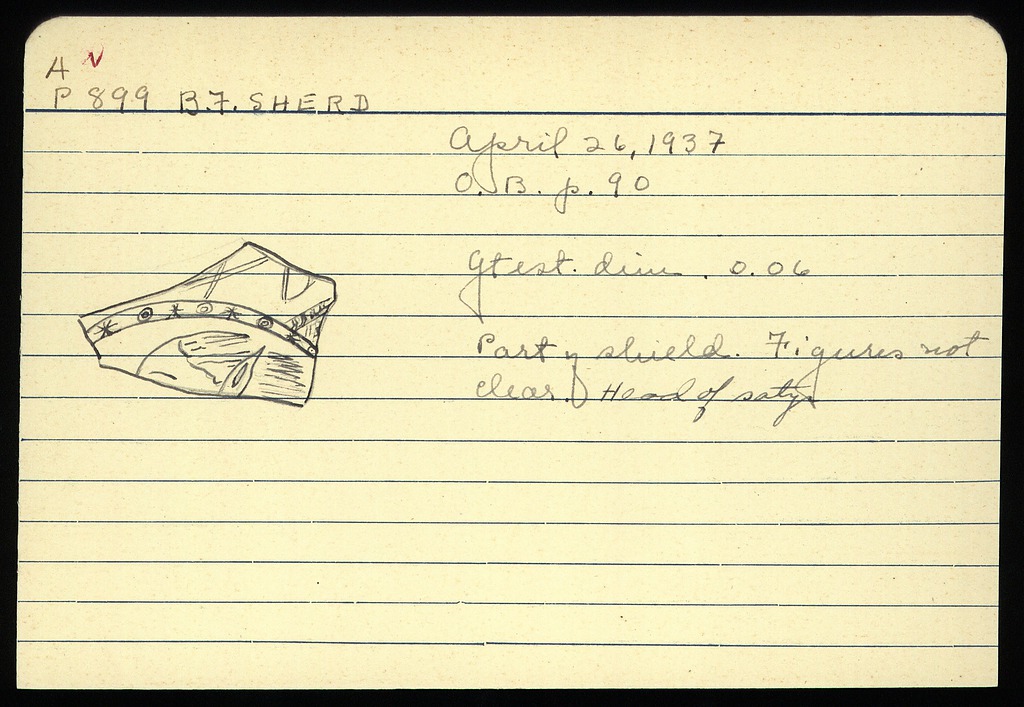 A
P 899 B.F. SHERD
April 26, 1937
O.B. p. 90
Gtest. dim. 0.06
Part of shield. Figures not
clear. Head of satyr